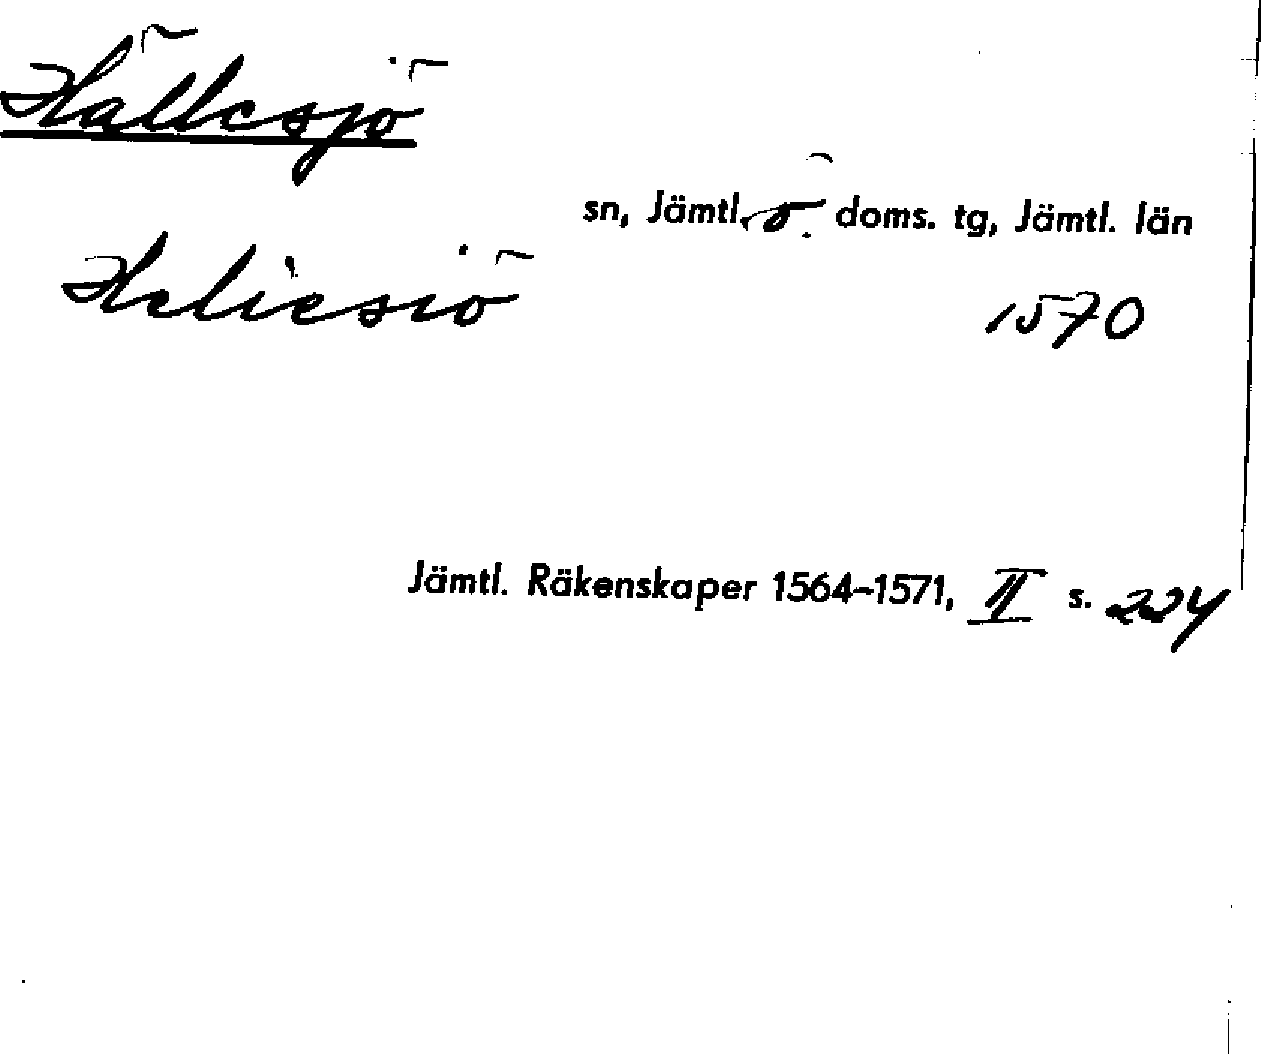 Hällesjö
sn, Jämtl. ö. doms. tg, Jämtl. län
Heliesiö
1570
Jämtl. Räkenskaper 1564-1571, II s. 224